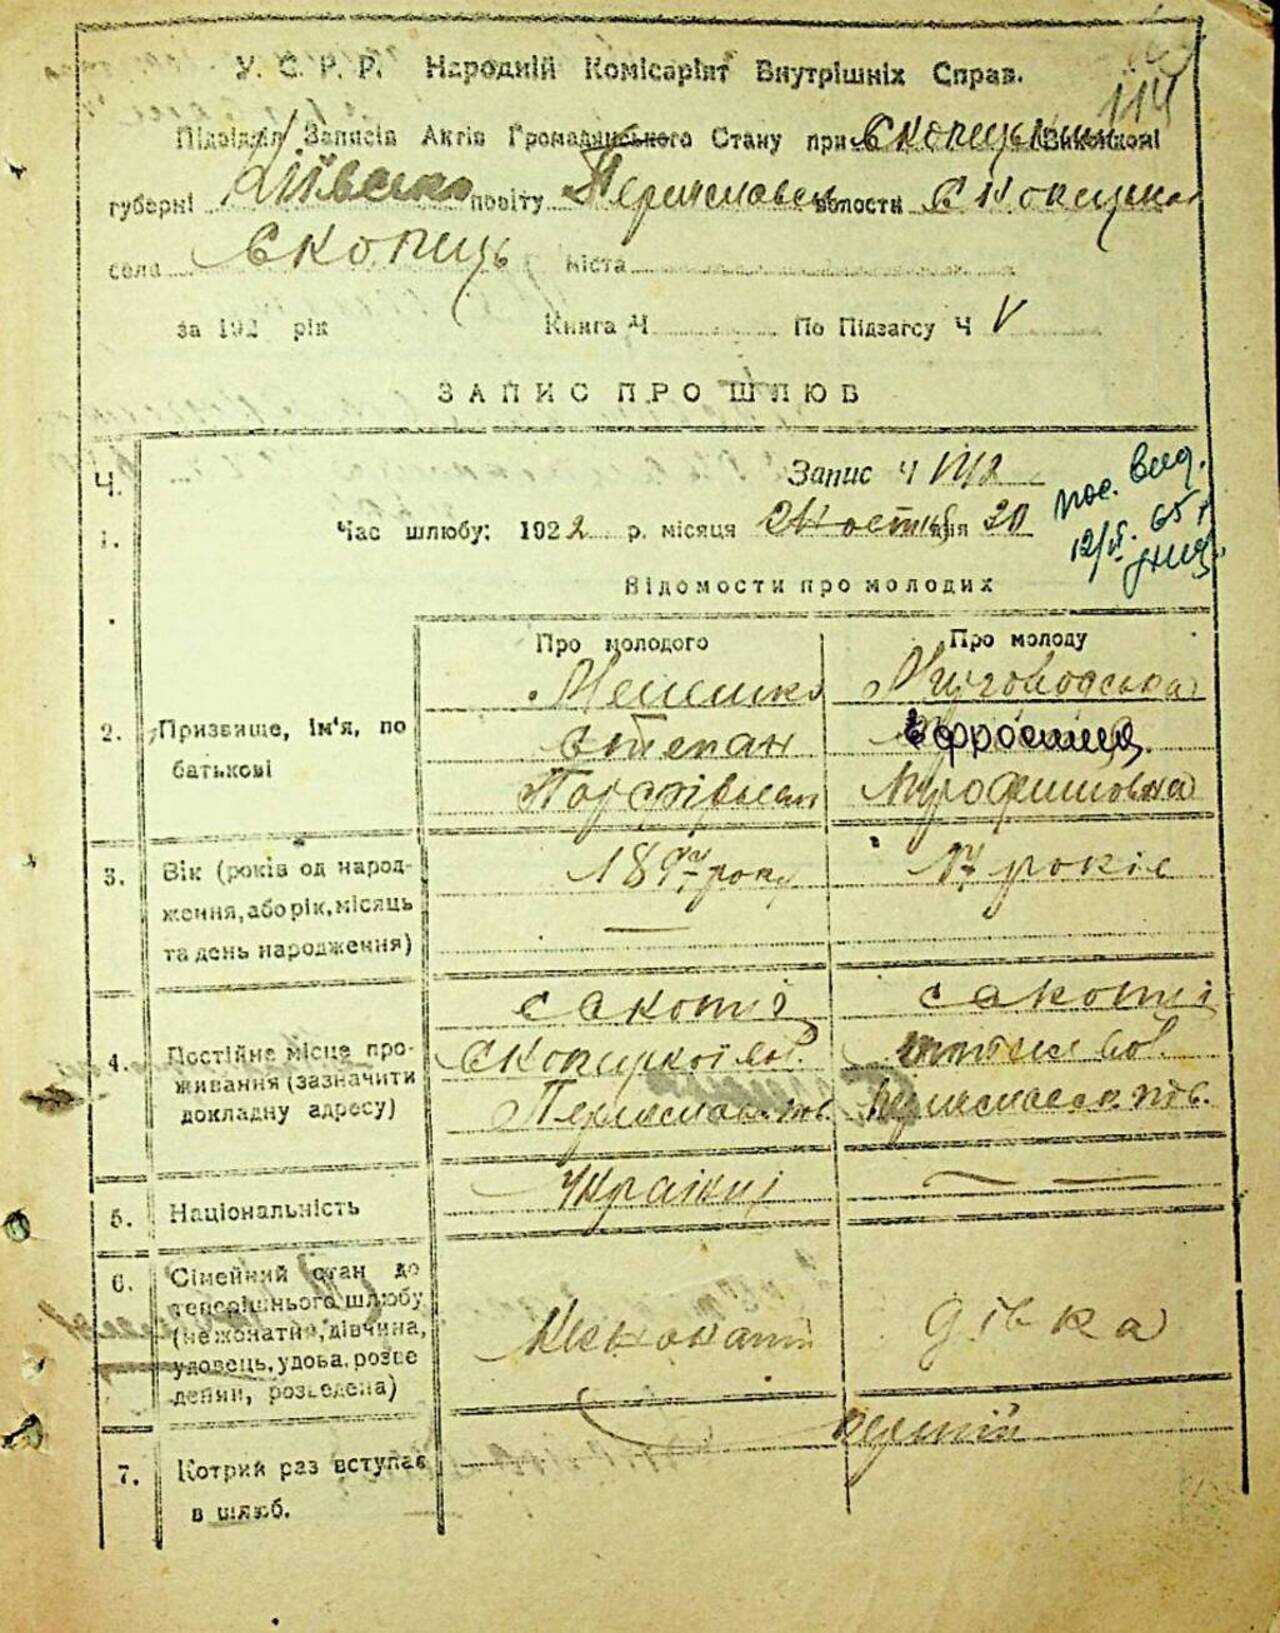 114
У. С. Р. Р. Народній Комісаріят Внутрішніх Справ.
Підвідділ Записів Актів Громадянського Стану при Скопецькім Виконкомі
губерні Київсько повіту Переяславськ волости Скопецька
села Скопець міста
за 192 рік Книга Ч По Підзагсу Ч V
ЗАПИС ПРО ШЛЮБ
Ч. Запис Ч
1. Час шлюбу: 1922 р. місяця дня 20
пос. вид.
12/ 65 г
Відомости про молодих
Про молодого Про молоду
2. Призвище, ім'я, по батькові
Степан Єфросинія
Порфірьевич Трофимовна
3. Вік (років од народ-
ження, або рік, місяць
та день народження)
189 року 17 років
4. Постійне місце про-
живання (зазначити
докладну адресу)
Скопецкої вол. вол.
Переяславск. пов. Переяславск. пов.
5. Національність Українці — —
6. Сімейний стан до
теперішнього шлюбу
(нежонатий, дівчина,
удовець, удова, розве
дений, розведена)
Нежонатий дівка
7. Котрий раз вступає
в шлюб.
первий